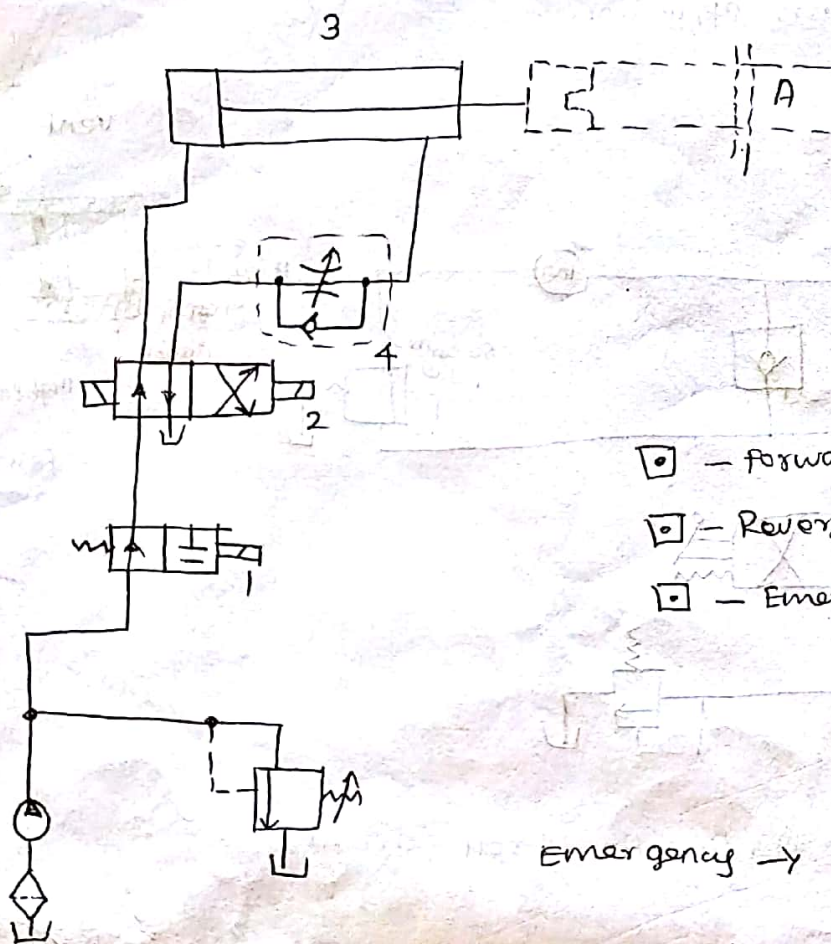 3
A
4
2
1
- forwa
- Rever
- Eme
Emergency →